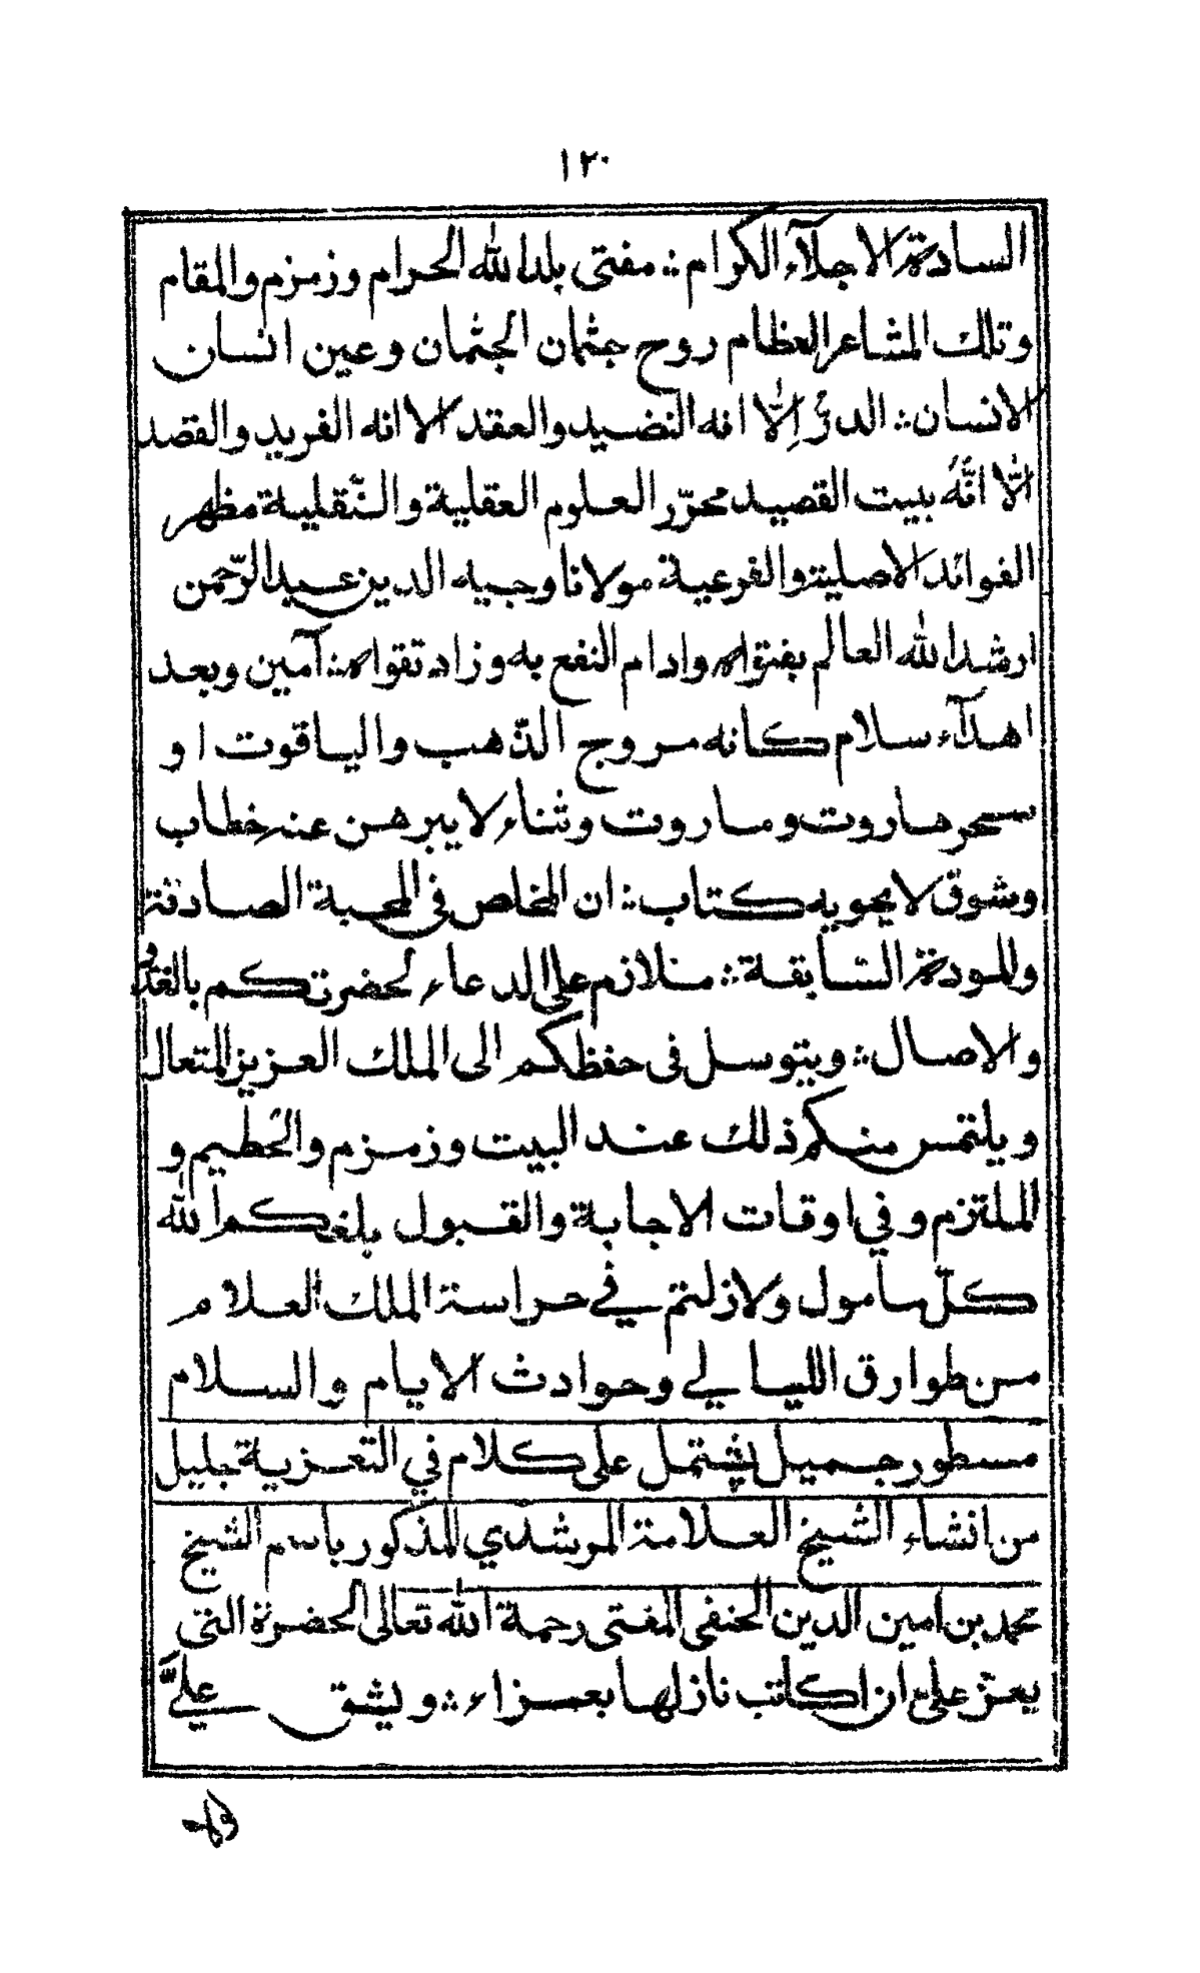 ١٢٠
السادة الاجلآء الكرام ؞ مفتى بلدالله الحرام وزمزم والمقام
وتلك المشاعر العظام روح جثمان الجثمان وعين انسان
الانسان ؞ الدرّ اِلّا انه النضيد والعقد الا انه الفريد والقصد
الّا انّهُ بيت القصيد محرّر العلوم العقلية والنّقلية مظهر
الفوائد الاصلية والفرعية مولانا وجيه الدين عبد الرّحمن
ارشد الله العالم بفتواه وادام النفع به وزاد تقواه ؞ آمين وبعد
اهدآء سلام كانه مروج الذّهب والياقوت او
سحر هاروت وماروت وثناء لا يبرهن عنه خطاب
وشوق لا يحويه كتاب ؞ ان المخلص فى المحبة الصادقة
وللمودة السّابقة ؞ ملازم على الدعاء لحضرتكم بالغدو
والاصال ؞ ويتوسل فى حفظكم الى الملك العزيز المتعال
ويلتمس منكم ذلك عند البيت وزمزم والحَطيم و
الملتزم وفي اوقات الاجابة والقبول بلغكم الله
كلّ مامول ولا زلتم في حراسة الملك العلام
من طوارق الليالي وحوادث الايام والسلام
مسطور جميل يشتمل على كلام في التعزية جليل
من انشاء الشيخ العلامة المرشدي المذكور باسم الشيخ
محمد بن امين الدين الحنفى المفتى رحمة الله تعالى الحضرة التى
يعزّ على ان اكاتب نازلها بعزاء ؞ ويشق عليَّ